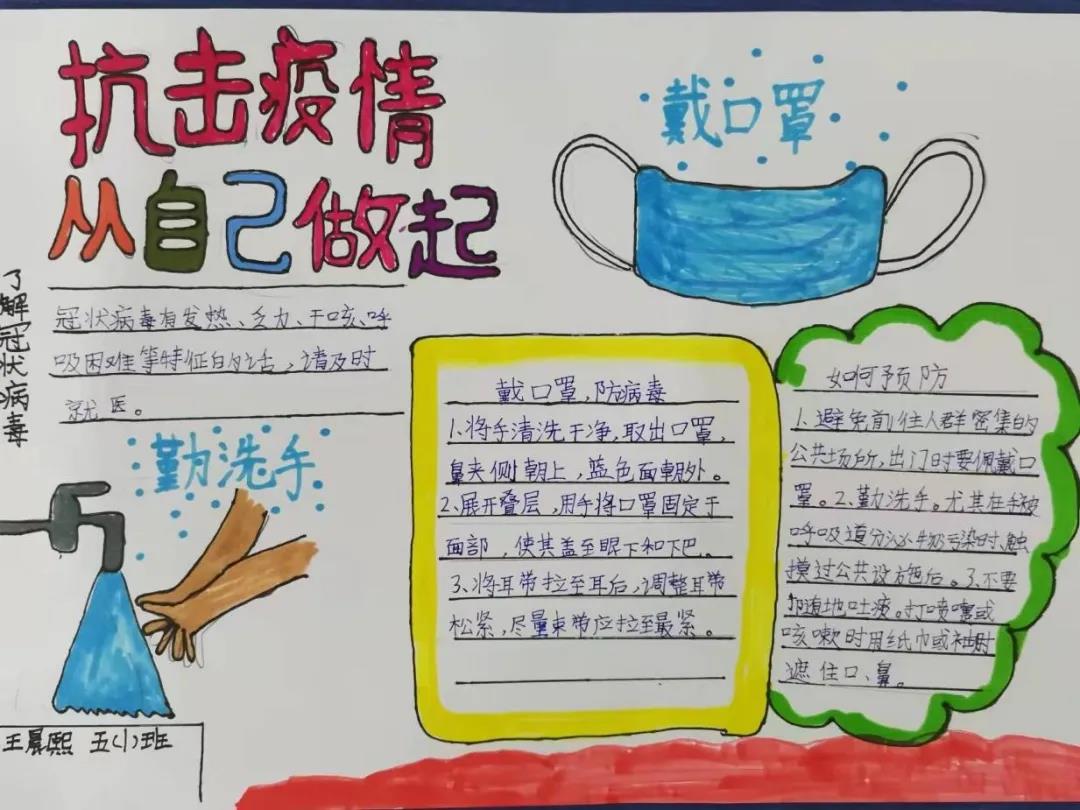 抗击疫情
从自己做起
戴口罩
了解冠状病毒
冠状病毒有发热、乏力、干咳、呼
吸困难等特征的话，请及时
就医。
勤洗手
戴口罩，防病毒
1.将手清洗干净，取出口罩，
鼻夹侧朝上，蓝色面朝外。
2.展开叠层，用手将口罩固定于
面部，使其盖至眼下和下巴。
3.将耳带拉至耳后，调整耳带
松紧，尽量束带应拉至最紧。
如何预防
1.避免前往人群密集的
公共场所，出门时要佩戴口
罩。2.勤洗手。尤其在手被
呼吸道分泌物污染时、触
摸过公共设施后。3.不要
随地吐痰。打喷嚏或
咳嗽时用纸巾或袖肘
遮住口、鼻。
王晨熙 五(1)班